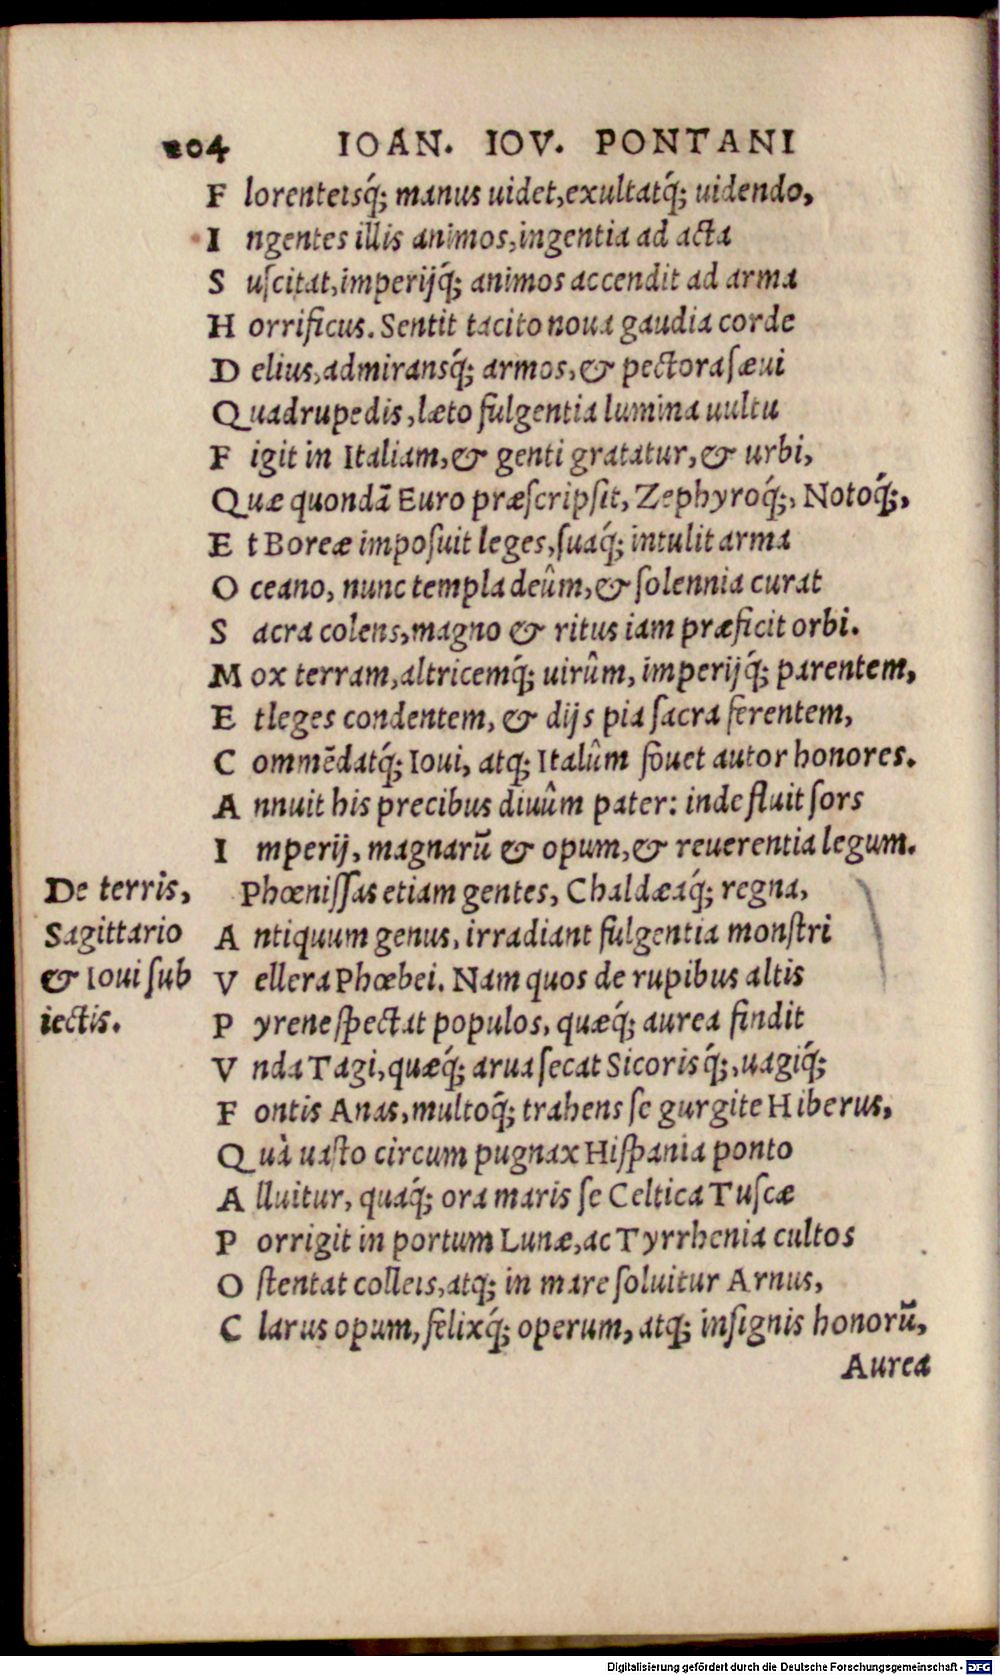 204 IOAN. IOV. PONTANI
F lorenteisq́; manus uidet, exultatq́; uidendo,
I ngentes illis animos, ingentia ad acta
S uſcitat, imperijq́; animos accendit ad arma
H orrificus. Sentit tacito noua gaudia corde
D elius, admiransq́; armos, & pectora ſæui
Q uadrupedis, læto fulgentia lumina uultu
F igit in Italiam, & genti gratatur, & urbi,
Q uæ quondā Euro præſcripſit, Zephyroq́;, Notoq́;,
E t Boreæ impoſuit leges, ſuaq́; intulit arma
O ceano, nunc templa deûm, & ſolennia curat
S acra colens, magno & ritus iam præficit orbi.
M ox terram, altricemq́; uirûm, imperijq́; parentem,
E t leges condentem, & dijs pia ſacra ferentem,
C ommēdatq́; Ioui, atq; Italûm fouet autor honores.
A nnuit his precibus diuûm pater: inde fluit ſors
I mperij, magnarū & opum, & reuerentia legum.
De terris, Phœniſſas etiam gentes, Chaldæaq́; regna,
Sagittario A ntiquum genus, irradiant fulgentia monſtri
& Ioui ſub V ellera Phœbei. Nam quos de rupibus altis
iectis. P yrene ſpectat populos, quæq́; aurea findit
V nda Tagi, quæq́; arua ſecat Sicorisq́;, uagiq́;
F ontis Anas, multoq́; trahens ſe gurgite Hiberus,
Q uà uaſto circum pugnax Hiſpania ponto
A lluitur, quaq́; ora maris ſe Celtica Tuſcæ
P orrigit in portum Lunæ, ac Tyrrhenia cultos
O ſtentat colleis, atq; in mare ſoluitur Arnus,
C larus opum, felixq́; operum, atq; inſignis honorū,
Aurea
Digitalisierung gefördert durch die Deutsche Forschungsgemeinschaft - DFG